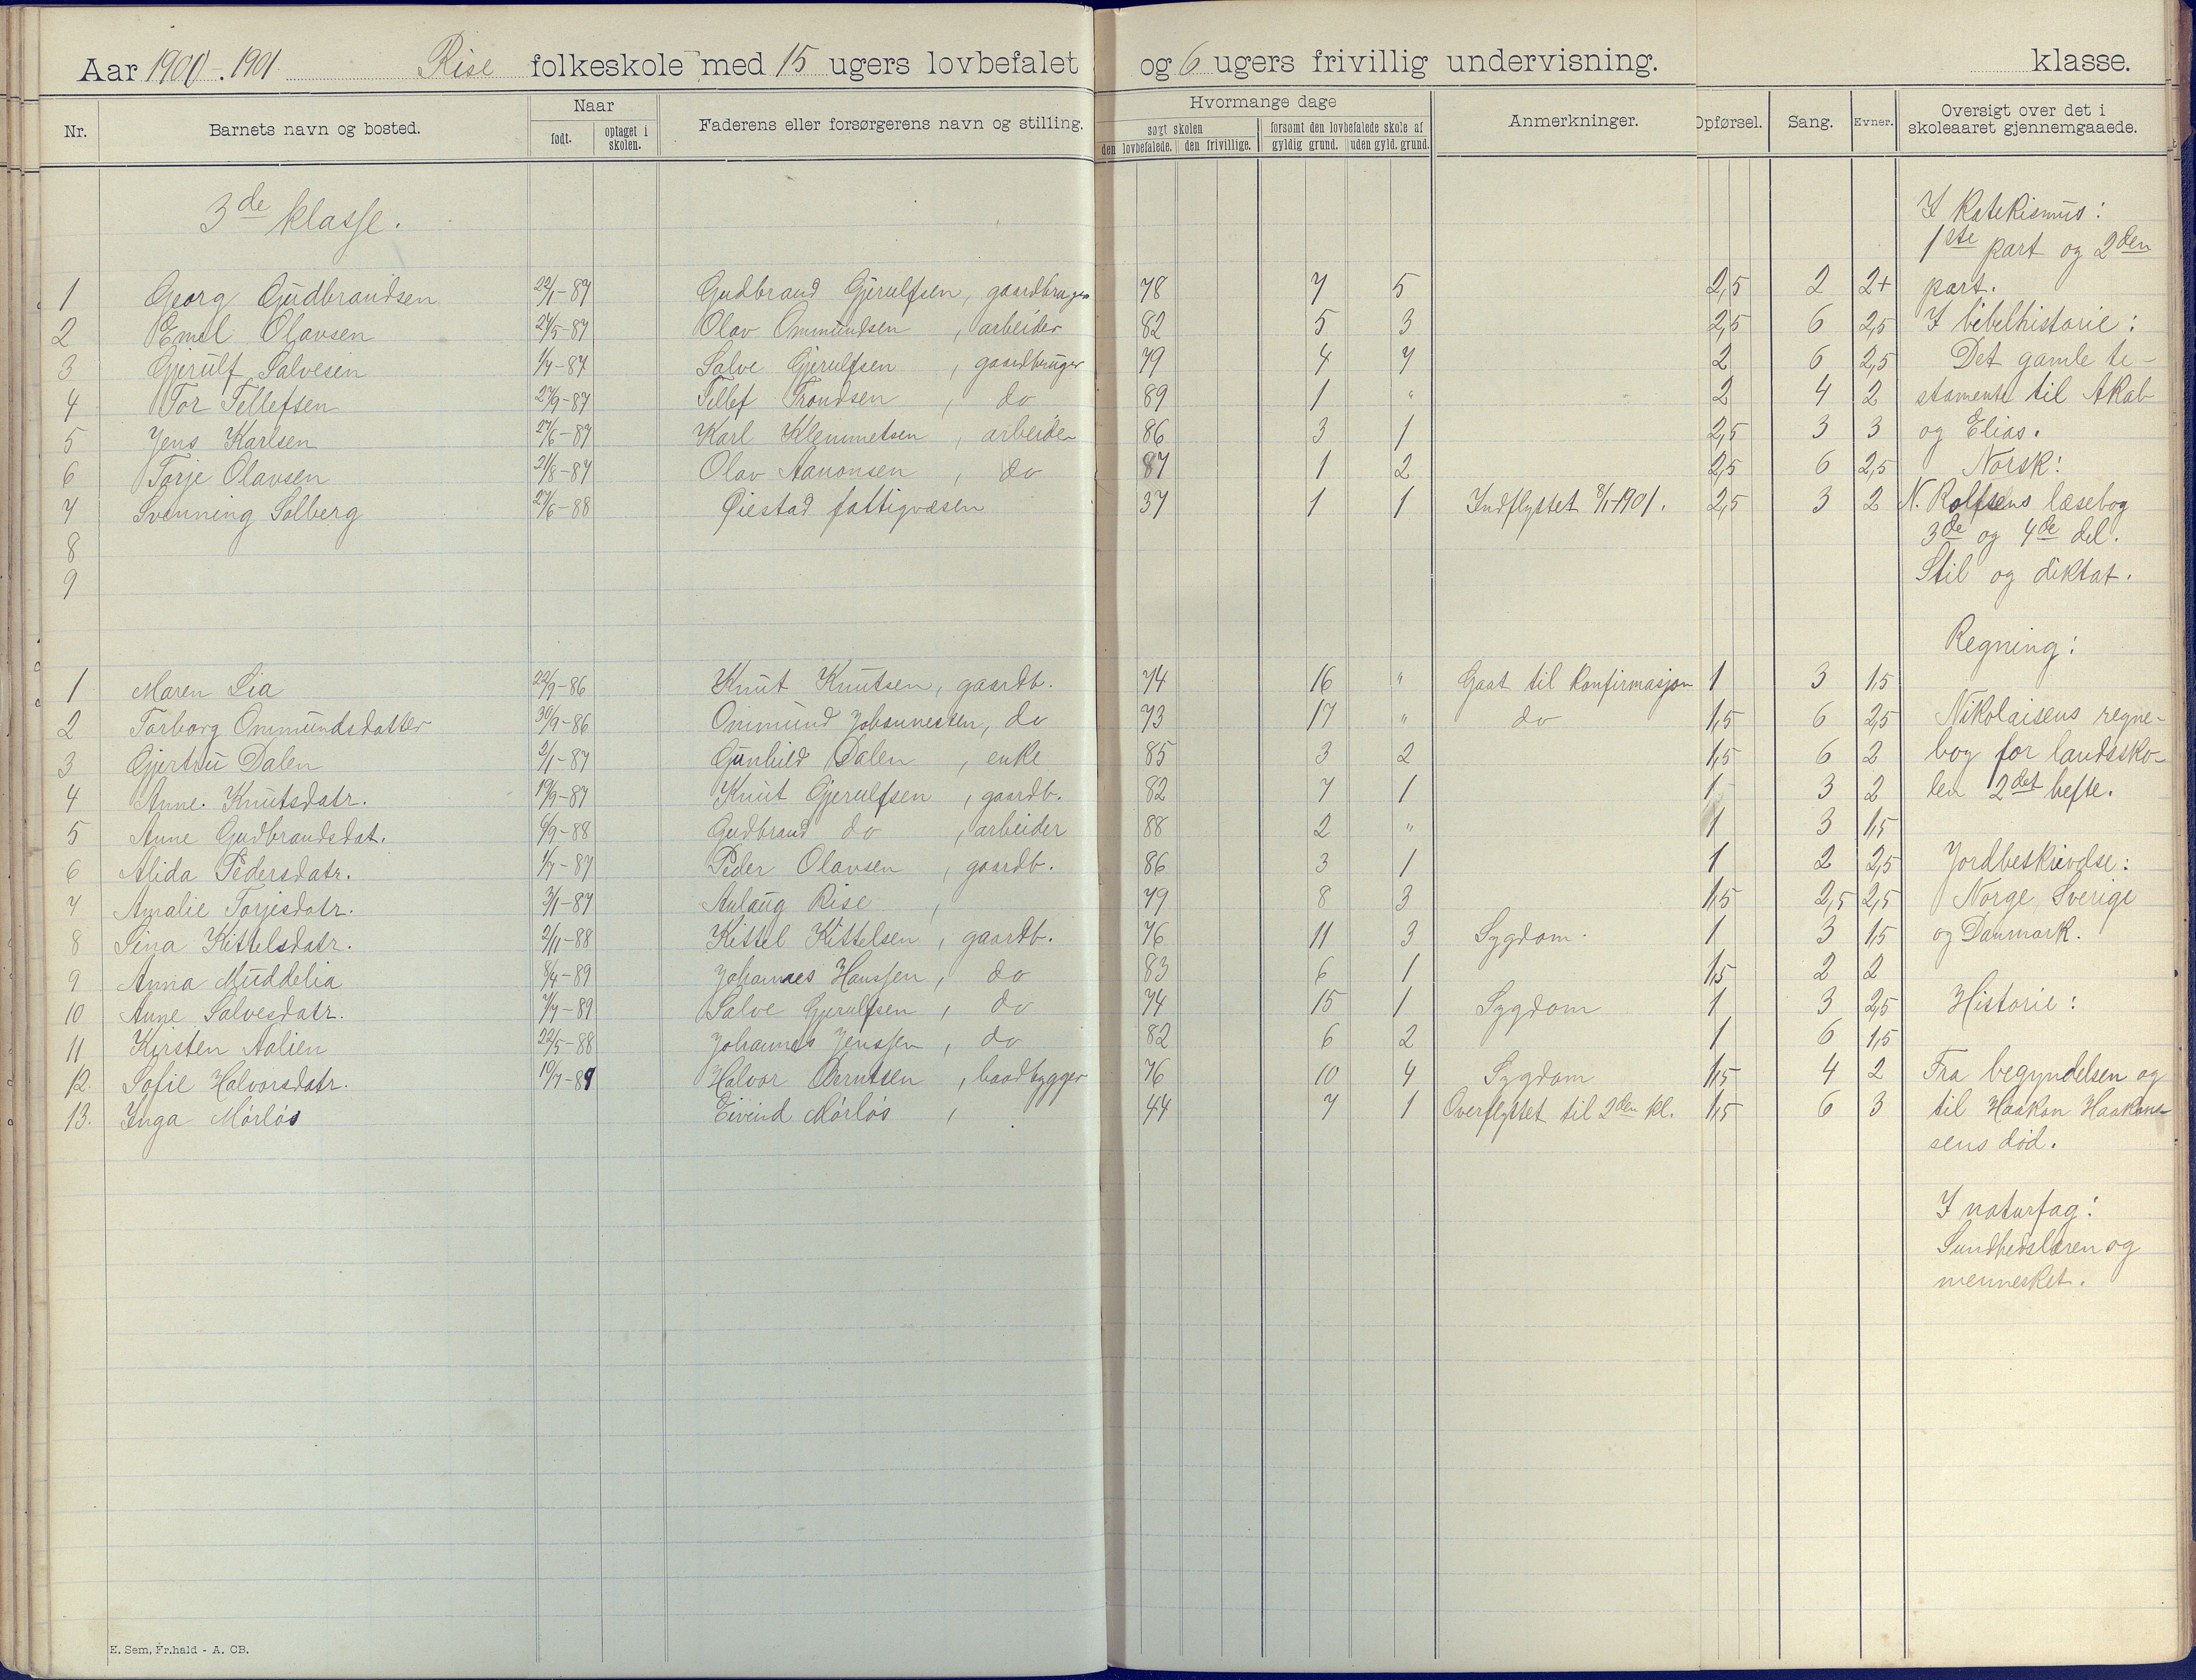 Aar 1900-1901 Rise folkeskole med 15 ugers lovbefalet og 6 ugers frivillig undervisning. klasse.
Nr. Barnets navn og bosted. Naar født. optaget i skolen. Faderens eller forsørgerens navn og stilling. Hvormange dage søgt skolen den lovbefalede. den frivillige. forsømt den lovbefalede skole af gyldig grund. uden gyld. grund. Anmerkninger. Opførsel. Sang. Evner. Oversigt over det i skoleaaret gjennemgaaede.
3de klasse.
1 Georg Gudbrandsen 22/1-87 Gudbrand Gjerulfsen, gaardbruger 78 7 5 2,5 2 2+
2 Emil Olavsen 24/5-87 Olav Ommundsen, arbeider 82 5 3 2,5 6 2,5
3 Gjerulf Salvesen 1/7-87 Salve Gjerulfsen, gaardbruger 79 4 7 2 6 2,5
4 Tor Tellefsen 27/9-87 Tellef Trondsen, do 89 1 " 2 4 2
5 Jens Karlsen 27/6-87 Karl Klemmetsen, arbeider 86 3 1 2,5 3 3
6 Torje Olavsen 21/8-87 Olav Aanonsen, do 87 1 2 2,5 6 2,5
7 Svenning Solberg 27/6-88 Øiestad fattigvæsen 37 1 1 Indflyttet 8/1-1901. 2,5 3 2
8
9
1 Maren Lia 22/9-86 Knut Knutsen, gaardb. 74 16 " Gaat til konfirmasjon 1 3 1,5
2 Torborg Ommundsdatter 30/9-86 Ommund Johannessen, do 73 17 " do 1,5 6 2,5
3 Gjertru Dalen 2/1-87 Gunhild Dalen, enke 85 3 2 1,5 6 2
4 Anne Knutsdatr. 19/9-87 Knut Gjerulfsen, gaardb. 82 7 1 1 3 2
5 Anne Gudbrandsdat. 6/9-88 Gudbrand do, arbeider 88 2 " 1 3 1,5
6 Alida Pedersdatr. 1/7-87 Peder Olavsen, gaardb. 86 3 1 1 2 2,5
7 Amalie Torjesdatr. 3/1-87 Aslaug Rise, 79 8 3 1,5 2,5 2,5
8 Sina Kittelsdatr. 2/11-88 Kittel Kittelsen, gaardb. 76 11 3 Sygdom. 1 3 1,5
9 Anna Muddelia 8/4-89 Johannes Hanssen, do 83 6 1 1,5 2 2
10 Anne Salvesdatr. 7/7-89 Salve Gjerulfsen, do 74 15 1 Sygdom 1 3 2,5
11 Kirsten Aalien 22/5-88 Johannes Jenssen, do 82 6 2 1 6 1,5
12. Sofie Halvorsdatr. 10/7-89 Halvor Berntsen, baadbygger 76 10 4 Sygdom 1,5 4 2
13. Inga Mørløs Eivind Mørløs, 44 7 1 Overflyttet til 2den kl. 1,5 6 3
I katekismus:
1ste part og 2den
part.
I bibelhistorie:
Det gamle te-
stamente til Akab
og Elias.
Norsk:
N. Rolfsens læsebog
3de og 4de del.
Stil og diktat.
Regning:
Nikolaisens regne-
bog for landssko-
len 2det hefte.
Jordbeskrivelse:
Norge, Sverige
og Danmark.
Historie:
Fra begyndelsen og
til Haakon Haakons-
sens død.
I naturfag:
Sundhedslæren og
mennesket.
E. Sem, Fr.hald - A. CB.